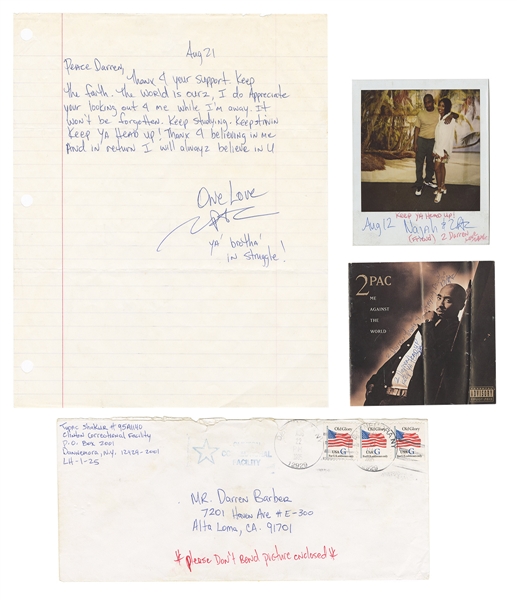 Aug 21
Peace Darren,
Thanx 4 your support. Keep
the faith. The world is ourz, I do Appreciate
your looking out 4 me while I'm away. It
won't be forgotten. Keep studying. Keep strivin
Keep Ya Head up! Thanx 4 believing in me
And in return I will alwayz believe in U
One Love
ya' brotha'
in struggle!
KEEP YA HEAD UP!
Aug 12
2 Darren
2PAC
ME
AGAINST
THE
WORLD
PARENTAL
ADVISORY
Tupac Shakur # 95A1140
Clinton Correctional Facility
P.O. Box 2001
Dannemora, N.Y. 12929-2001
LH-1-25
CORRECTIONAL
FACILITY
12929
Old Glory
USA G
Old Glory
USA G
Old Glory
USA G
MR. Darren Barber
7201 Haven Ave # E-300
Alta Loma, CA. 91701
* Please Don't Bend picture enclosed *